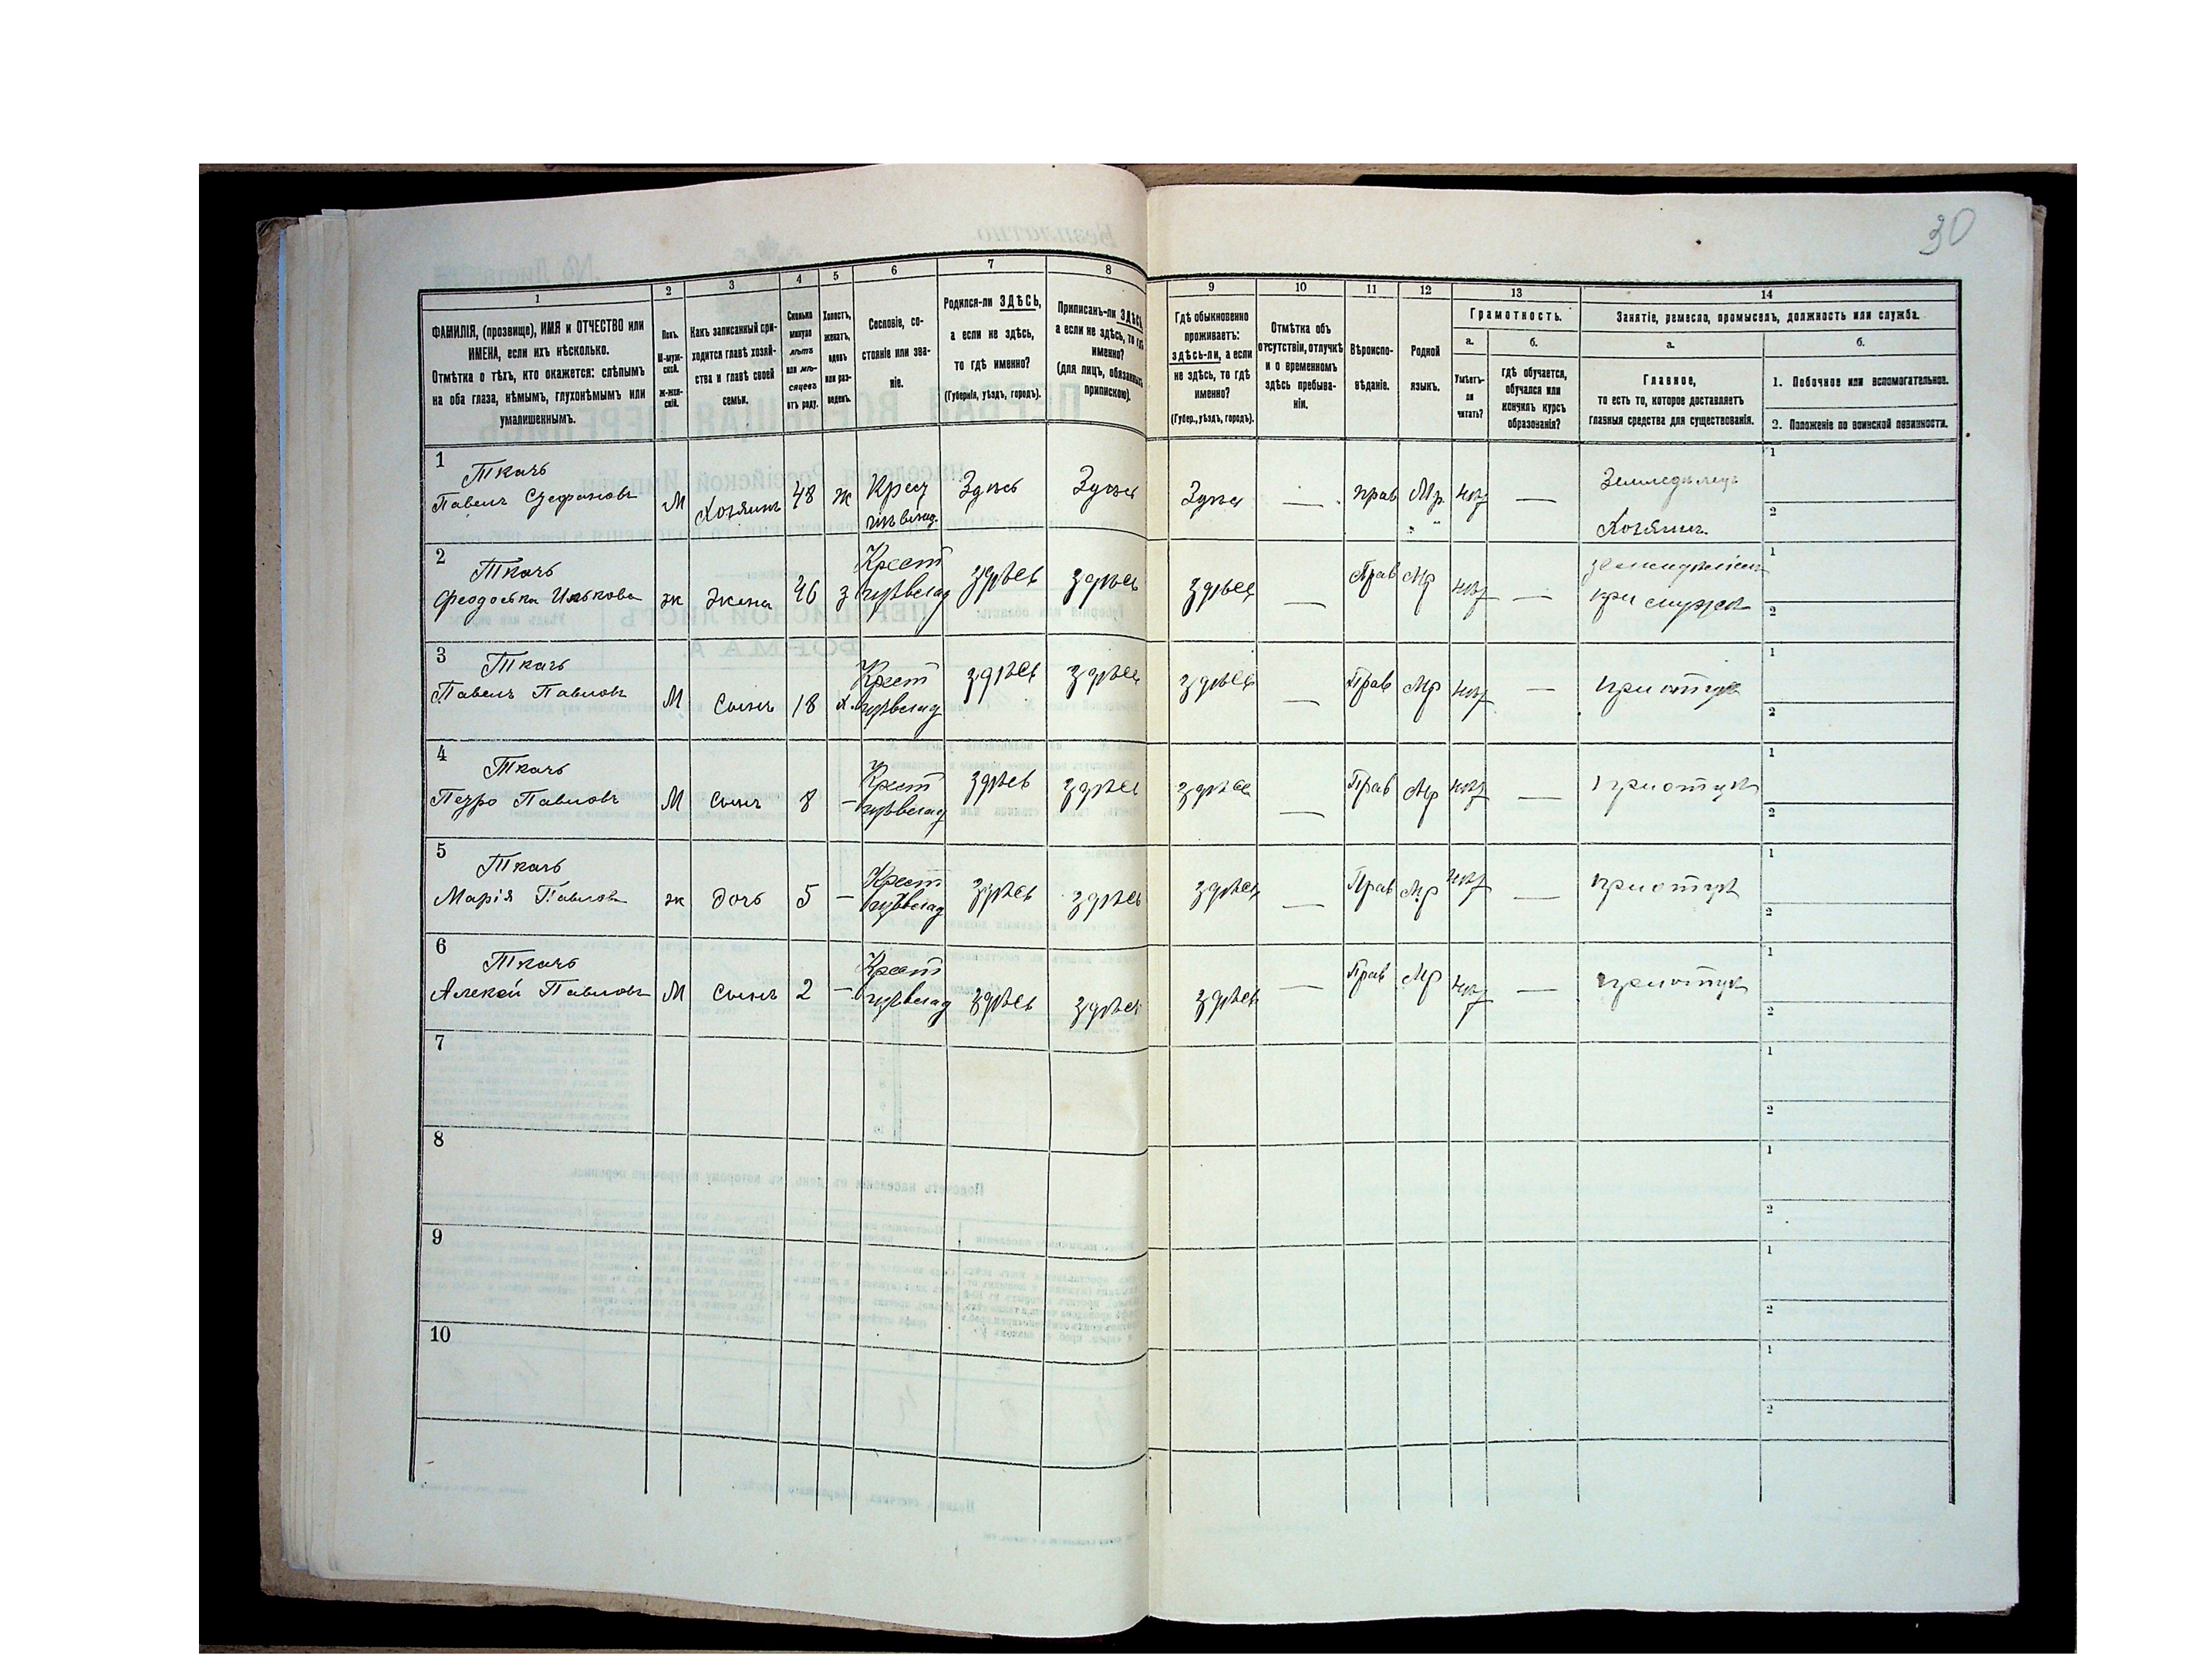 30
1 2 3 4 5 6 7 8 9 10 11 12 13 14
ФАМИЛІЯ, (прозвище), ИМЯ и ОТЧЕСТВО или
ИМЕНА, если ихъ нѣсколько.
Отмѣтка о тѣхъ, кто окажется: слѣпымъ
на оба глаза, нѣмымъ, глухонѣмымъ или
умалишеннымъ.
Полъ.
М-муж-
ской.
ж-жен-
скій.
Какъ записанный при-
ходится главѣ хозяй-
ства и главѣ своей
семьи.
Сколько
минуло
лѣтъ
или мѣ-
сяцевъ
отъ роду.
Холостъ,
женатъ,
вдовъ
или раз-
веденъ.
Сословіе, со-
стояніе или зва-
ніе.
Родился-ли ЗДѢСЬ,
а если не здѣсь,
то гдѣ именно?
(Губернія, уѣздъ, городъ).
Приписанъ-ли ЗДѢСЬ,
а если не здѣсь, то гдѣ
именно?
(для лицъ, обязанныхъ
припиского).
Гдѣ обыкновенно
проживаетъ:
здѣсь-ли, а если
не здѣсь, то гдѣ
именно?
(Губер., уѣздъ, городъ).
Отмѣтка объ
отсутствіи, отлучкѣ
и о временномъ
здѣсь пребыва-
ніи.
Вѣроиспо-
вѣданіе.
Родной
языкъ.
Грамотность.
а.
Умѣетъ-
ли
читать?
б.
гдѣ обучается,
обучался или
кончилъ курсъ
образованія?
Занятіе, ремесло, промыселъ, должность или служба.
а.
Главное,
то есть то, которое доставляетъ
главныя средства для существованія.
б.
1. Побочное или вспомогательное.
2. Положеніе по воинской повинности.
1 Ткачъ
Павелъ Стефановъ М Хозяинъ 48 ж Крест Здѣсь Здѣсь Здѣсь — прав Мр. нѣт — Земледѣлецъ
Хозяинъ
2 Ткачъ
Феодоська Илькова ж жена 46 з Крест здѣсь здѣсь здѣсь — Прав Мр нѣт —
3 Ткачъ
Павелъ Павловъ М сынъ 18 х. Крест здѣсь здѣсь здѣсь — Прав Мр нѣт — при отцѣ
4 Ткачъ
Петро Павловъ М сынъ 8 — Крест здѣсь здѣсь здѣсь — Прав Мр нѣт — при отцѣ
5 Ткачъ
Марія Павлов ж дочь 5 — Крест здѣсь здѣсь здѣсь — Прав Мр нѣт — при отцѣ
6 Ткачъ
Алексѣй Павловъ М сынъ 2 — Крест здѣсь здѣсь здѣсь — Прав Мр нѣт — при отцѣ
7
8
9
10